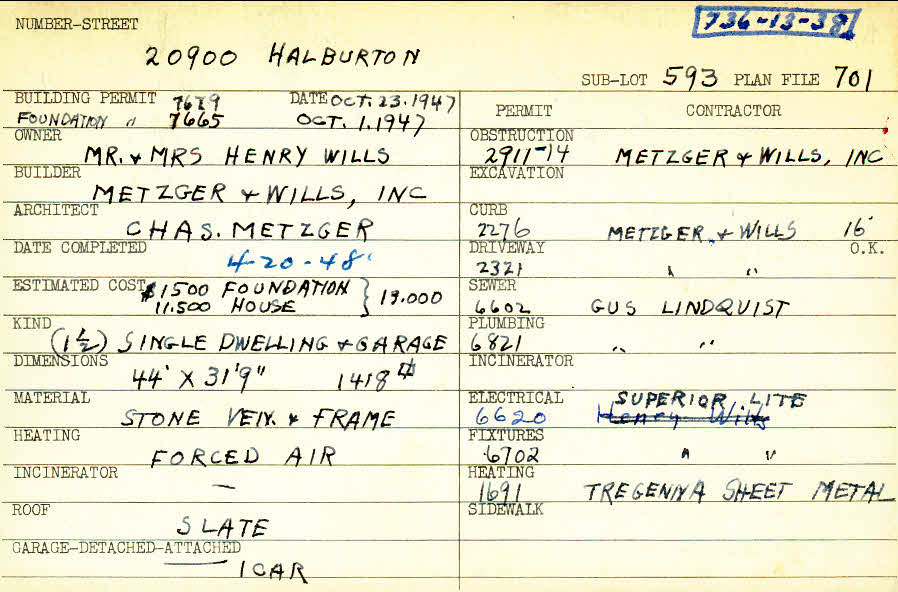 NUMBER-STREET
736-13-38
20900 HALBURTON
SUB-LOT 593 PLAN FILE 701
BUILDING PERMIT 7679 DATE OCT. 23. 1947
FOUNDATION " 7665 OCT. 1. 1947
OWNER
MR. & MRS HENRY WILLS
BUILDER
METZGER & WILLS, INC
ARCHITECT
CHAS. METZGER
DATE COMPLETED
4-20-48
ESTIMATED COST $1500 FOUNDATION
11.500 HOUSE } 19.000
KIND
(1½) SINGLE DWELLING & GARAGE
DIMENSIONS
44' X 31'9" 1418
MATERIAL
STONE VEN. & FRAME
HEATING
FORCED AIR
INCINERATOR
—
ROOF
SLATE
GARAGE-DETACHED-ATTACHED
1 CAR
PERMIT CONTRACTOR
OBSTRUCTION
2911-14 METZGER & WILLS, INC
EXCAVATION
CURB
2276 METZGER & WILLS 16'
DRIVEWAY O.K.
2321 " "
SEWER
6602 GUS LINDQUIST
PLUMBING
6821 " "
INCINERATOR
ELECTRICAL SUPERIOR LITE
6620 Henry Wills
FIXTURES
6702 " "
HEATING
1691 TREGENNA SHEET METAL
SIDEWALK